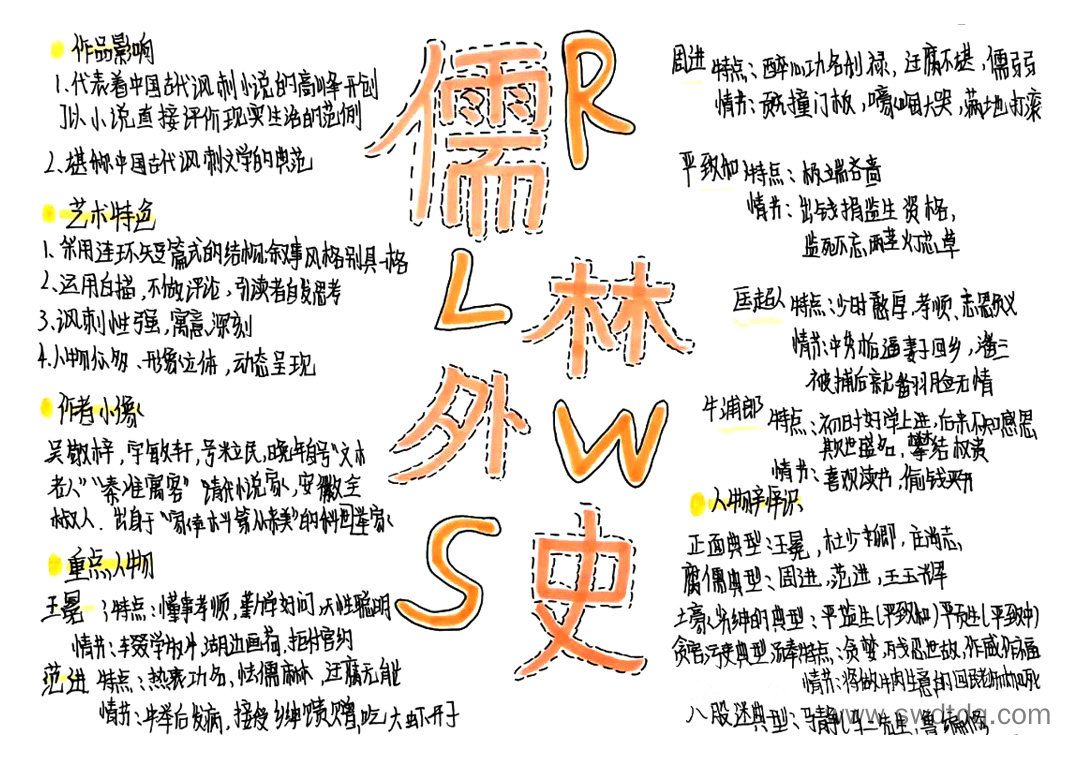 作品影响
1.代表着中国古代讽刺小说的高峰开创
了以小说直接评价现实生活的范例
2、堪称中国古代讽刺文学的典范
艺术特色
1、采用连环短篇式的结构叙事风格别具一格
2、运用白描,不做评论,引读者自发思考
3、讽刺性强,寓意深刻
4、人物众多、形象立体,动态呈现
作者小像
吴敬梓,字敏轩,号粒民,晚年自号“文木
老人”“秦淮寓客”清代小说家,安徽全
椒人.出身于“家
重点人物
王冕 特点:懂事孝顺,勤学好问,天性聪明
情节:辍学放牛,湖边画荷,拒付官约
范进 特点:热衷功名,怯懦麻木,迂腐无能
情节:中举后发病,接受乡绅馈赠,吃大虾丹子
儒 R
L 林
外 W
S 史
周进 特点:醉心功名利禄,迂腐不堪,儒弱
情节:头撞门板,嚎啕大哭,满地打滚
严致和 特点:极端吝啬
情节:出钱捐监生资格,
临死不忘两茎灯草
匡超人 特点:少时憨厚、孝顺、忘恩负义
情节:中秀才后逼妻子回乡,潘三
被捕后就翻脸无情
牛浦郎 特点:初时好学上进,后来不知感恩
欺世盗名,攀结权贵
情节:喜欢读书,偷钱买书
人物辨识
正面典型:王冕,杜少卿,庄尚志,
腐儒典型:周进,范进,王玉辉
土豪劣绅的典型:严监生(严致和)严贡生(严致中)
贪官污吏典型 汤奉特点:贪婪,残忍世故,作威作福
情节:将做牛肉生意的回民老师夫枷死
八股迷典型:马静(马二先生,鲁编修
www.swdtdq.com